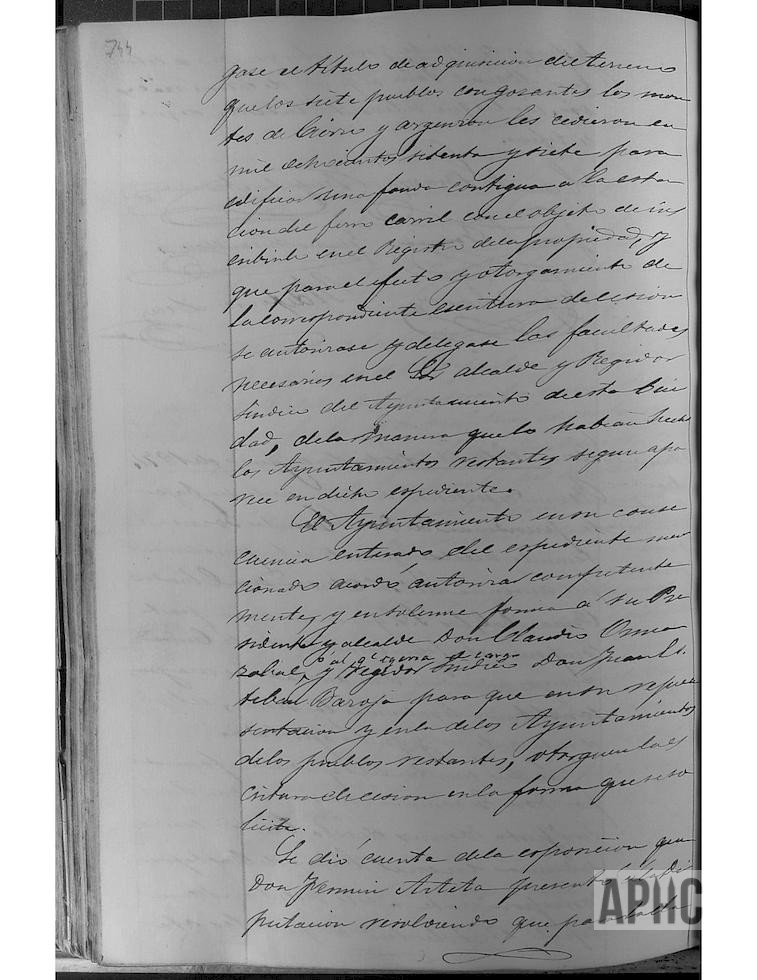 744
gase el título de adquisicion del terreno
que los siete pueblos congosantes los mon
tes de Cierro y argenzon les cedieron en
mil ochocientos setenta y siete para
edificar una fonda contigua a la esta
cion del ferro carril con el objeto de ins
cribirla en el Registro de la propiedad, y
que para el efecto y otorgamiento de
la correspondiente escritura de cesion
se autorizase y delegase las facultades
necesarias en el Sr alcalde y Regidor
Sindico del Ayuntamiento de esta Ciu
dad, de la manera que lo habian hecho
los Ayuntamientos restantes segun apa
rece en dicho espediente.
El Ayuntamiento en su conse
cuencia enterado del espediente men
cionado acordó autorizar competente
mente, y en solemne forma á su Pre
sidente y alcalde Don Claudio
o al qe ejerza el cargo
y Regidor Sindico Don Juan Es
teban Baroja para que en su repre
sentacion y en la de los Ayuntamientos
de los pueblos restantes, otorguen la es
critura de cesion en la forma que se so
licita.
Se dió cuenta de la esposicion que
Don Fermin Arteta presentó á la Di
putacion resolviendo que
APHC